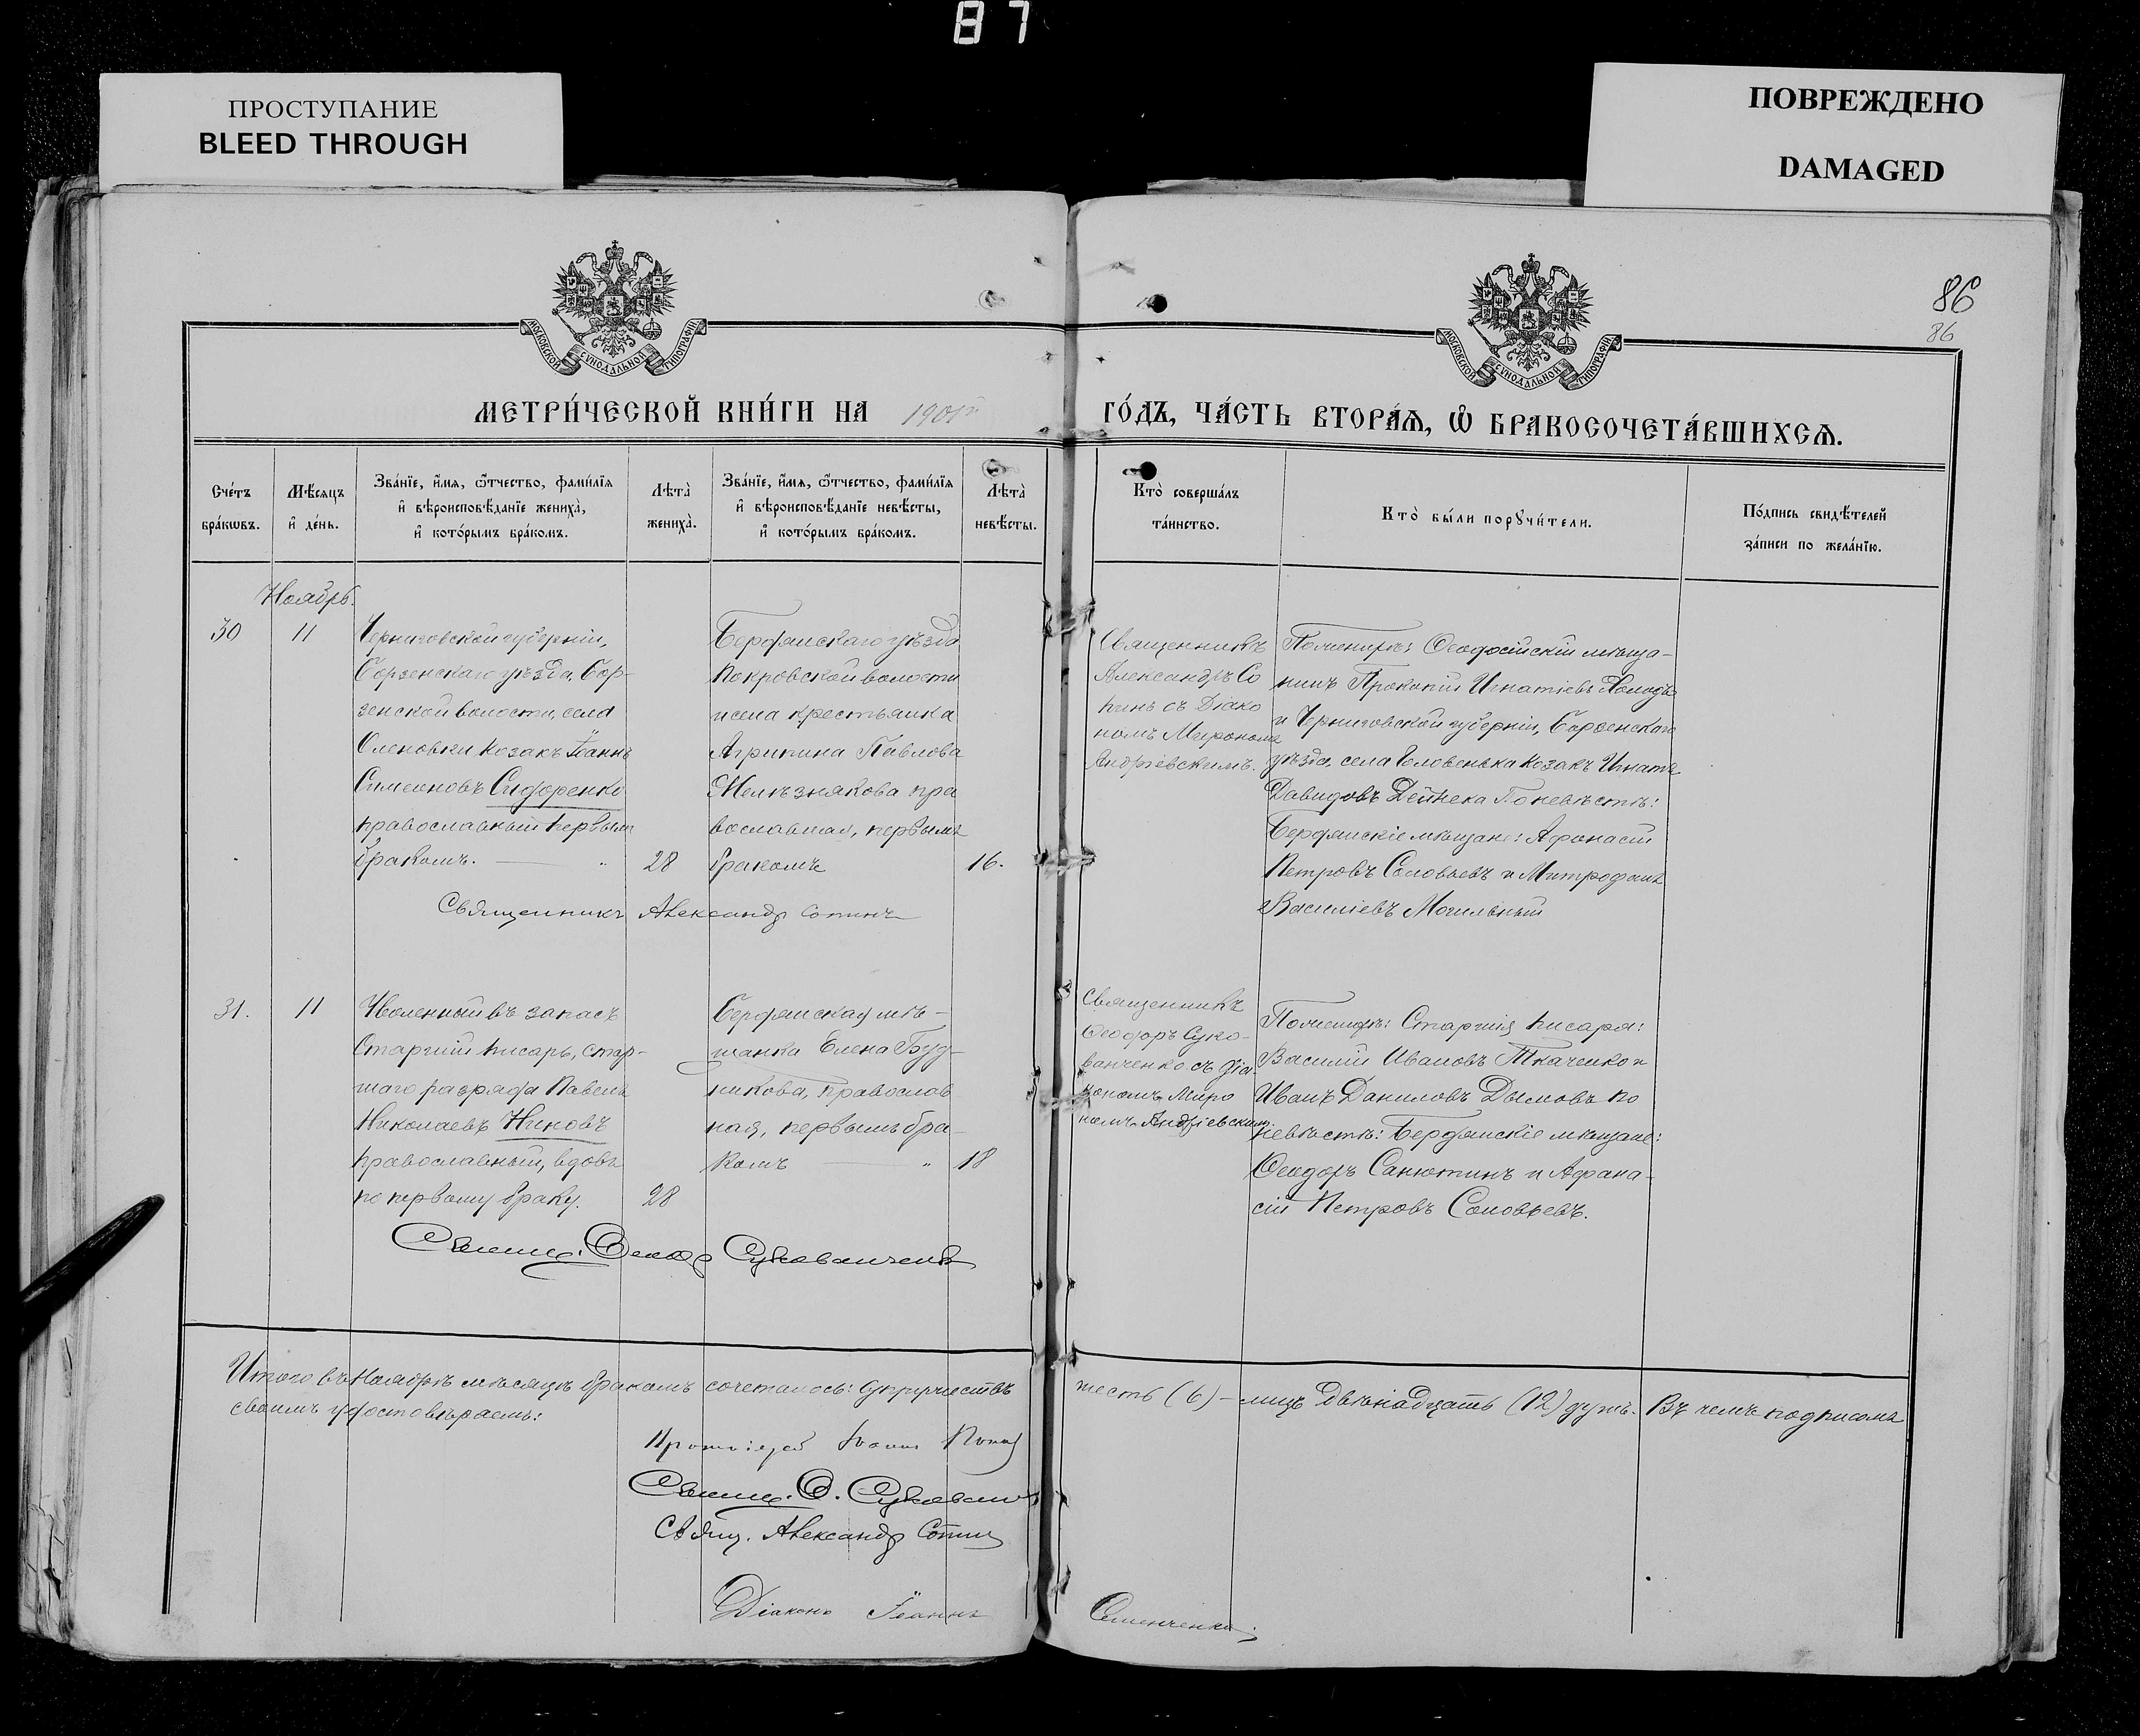 87
ПРОСТУПАНИЕ
BLEED THROUGH
ПОВРЕЖДЕНО
DAMAGED
86
86
МОСКОВСКОЙ СѴНОДАЛЬНОЙ ТИПОГРАФІИ
МОСКОВСКОЙ СѴНОДАЛЬНОЙ ТИПОГРАФІИ
МЕТРИ́ЧЕСКОЙ КНИ́ГИ НА 1901й
ГО́ДЪ, ЧА́СТЬ ВТОРА́Ѧ, Ѽ БРАКОСОЧЕТА́ВШИХСѦ.
Сче́тъ
бра́кѡвъ.
Мѣ́сѧцъ
и҆ де́нь.
Зва́нїе, и҆́мѧ, ѻ҆́тчество, фами́лїѧ
и҆ вѣроисповѣ́данїе жениха̀,
и҆ кото́рымъ бра́комъ.
Лѣта̀
жениха̀.
Зва́нїе, и҆́мѧ, ѻ҆́тчество, фами́лїѧ
и҆ вѣроисповѣ́данїе невѣ́сты,
и҆ кото́рымъ бра́комъ.
Лѣта̀
невѣ́сты.
Кто̀ соверша́лъ
та́инство.
Кто̀ бы́ли порꙋчи́тели.
По́дпись свидѣ́телей
за́писи по жела́нїю.
Ноябрь.
30
11
Черниговской губерніи,
Борзенскаго уѣзда, Бор-
зенской волости, села
Оленовки козакъ Іоаннъ
Симеоновъ Сидоренко
православный первымъ
бракомъ.
28
Бердянскаго уѣзда
Покровской волости
и села крестьянка
Агрипина Павлова
Желѣзнякова пра
вославная, первымъ
бракомъ
16.
Священникъ
Александръ Со
тинъ съ Діако
номъ Мирономъ
Андріевскимъ.
По женихѣ: Ѳеодосійскій мѣща-
нинъ Прокопій Игнатіевъ Холодъ
и Черниговской губерніи, Борзенскаго
уѣзда, села Головенька козакъ Игнатъ
Давидовъ Дейнека По невѣстѣ:
Бердянскіе мѣщане: Афонасій
Петровъ Соловьевъ и Митрофанъ
Василіевъ Могильный
Священникъ Александр Сотинъ
31.
11
Уволенный въ запасъ
Старшій писарь, стар-
шаго разряда Павелъ
Николаевъ Ниновъ
православный, вдовъ
по первому браку.
28
Бердянская мѣ-
щанка Елена Буд-
никова, православ
ная, первымъ бра-
комъ
18
Священникъ
Ѳеодоръ Суко-
ванченко съ діа-
кономъ Миро
номъ Андріевскимъ.
По женихѣ: Старшія писаря:
Василій Ивановъ Ткаченко и
Иванъ Даниловъ Дымовъ по
невѣстѣ: Бердянскіе мѣщане:
Ѳеодоръ Санютинъ и Афана-
сій Петровъ Соловьевъ.
Свящ. Ѳеодор Сукованченко
Итого въ Ноябрѣ мѣсяцѣ бракомъ сочеталось: супружествъ шесть (6) – лицъ двѣнадцать (12) душъ. Въ чемъ подписомъ
своимъ удостовѣряемъ:
Протоіерей Іоанн
Свящ. Ѳ. Сукован
Свящ. Александр Сотин
Діаконъ Іоаннъ Семенченко